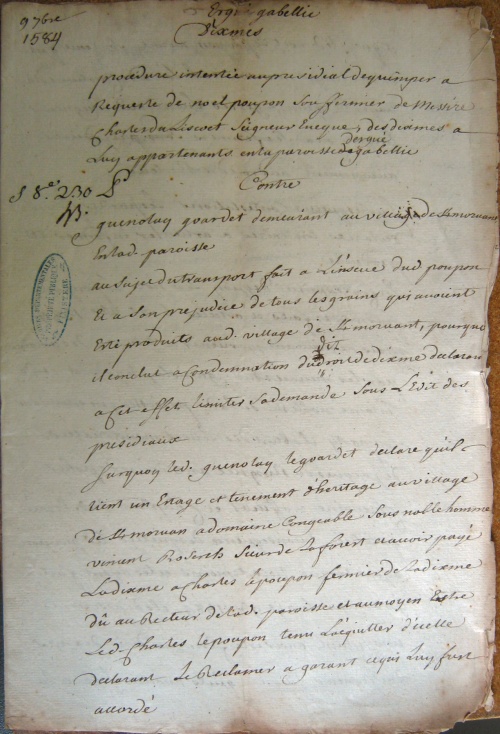 9 7bre
1584
Ergué gabellic
Dixmes
procedure intentée au presidial de quimper a
Requeste de noel poupon souffermier de Messire
Charles du Liscoet Seigneur Eveque, des dixmes a
Luy appartenants en la paroisse dergué gabellic
Contre
S 8.e 230 L
guenolay goardet demeurant au village de St morvant
En lad. paroisse
au sujet du transport fait a L'insceue dud poupon
Et a son prejudice de tous les grains qui avoient
Esté produits aud. village de St morvant, pourquoy
il conclut a Condemnation dudit droit de dixme declarant
a cet effet limiter sa demande sous L'Edit des
presidiaux
surquoy led. guenolay legoardet declare qu'il
tient un Estage et tenement d'heritage au village
de St morvan a domaine Congeable sous noble homme
vincent Roserch sieur de La forest et avoir payé
La dixme a Charles lepoupon fermier de La dixme
dû au Recteur de lad. paroisse et au moyen Estre
Led. Charles lepoupon tenu L'aquitter d'icelle
declarant le Reclamer a garant ce qui Luy fust
accordé